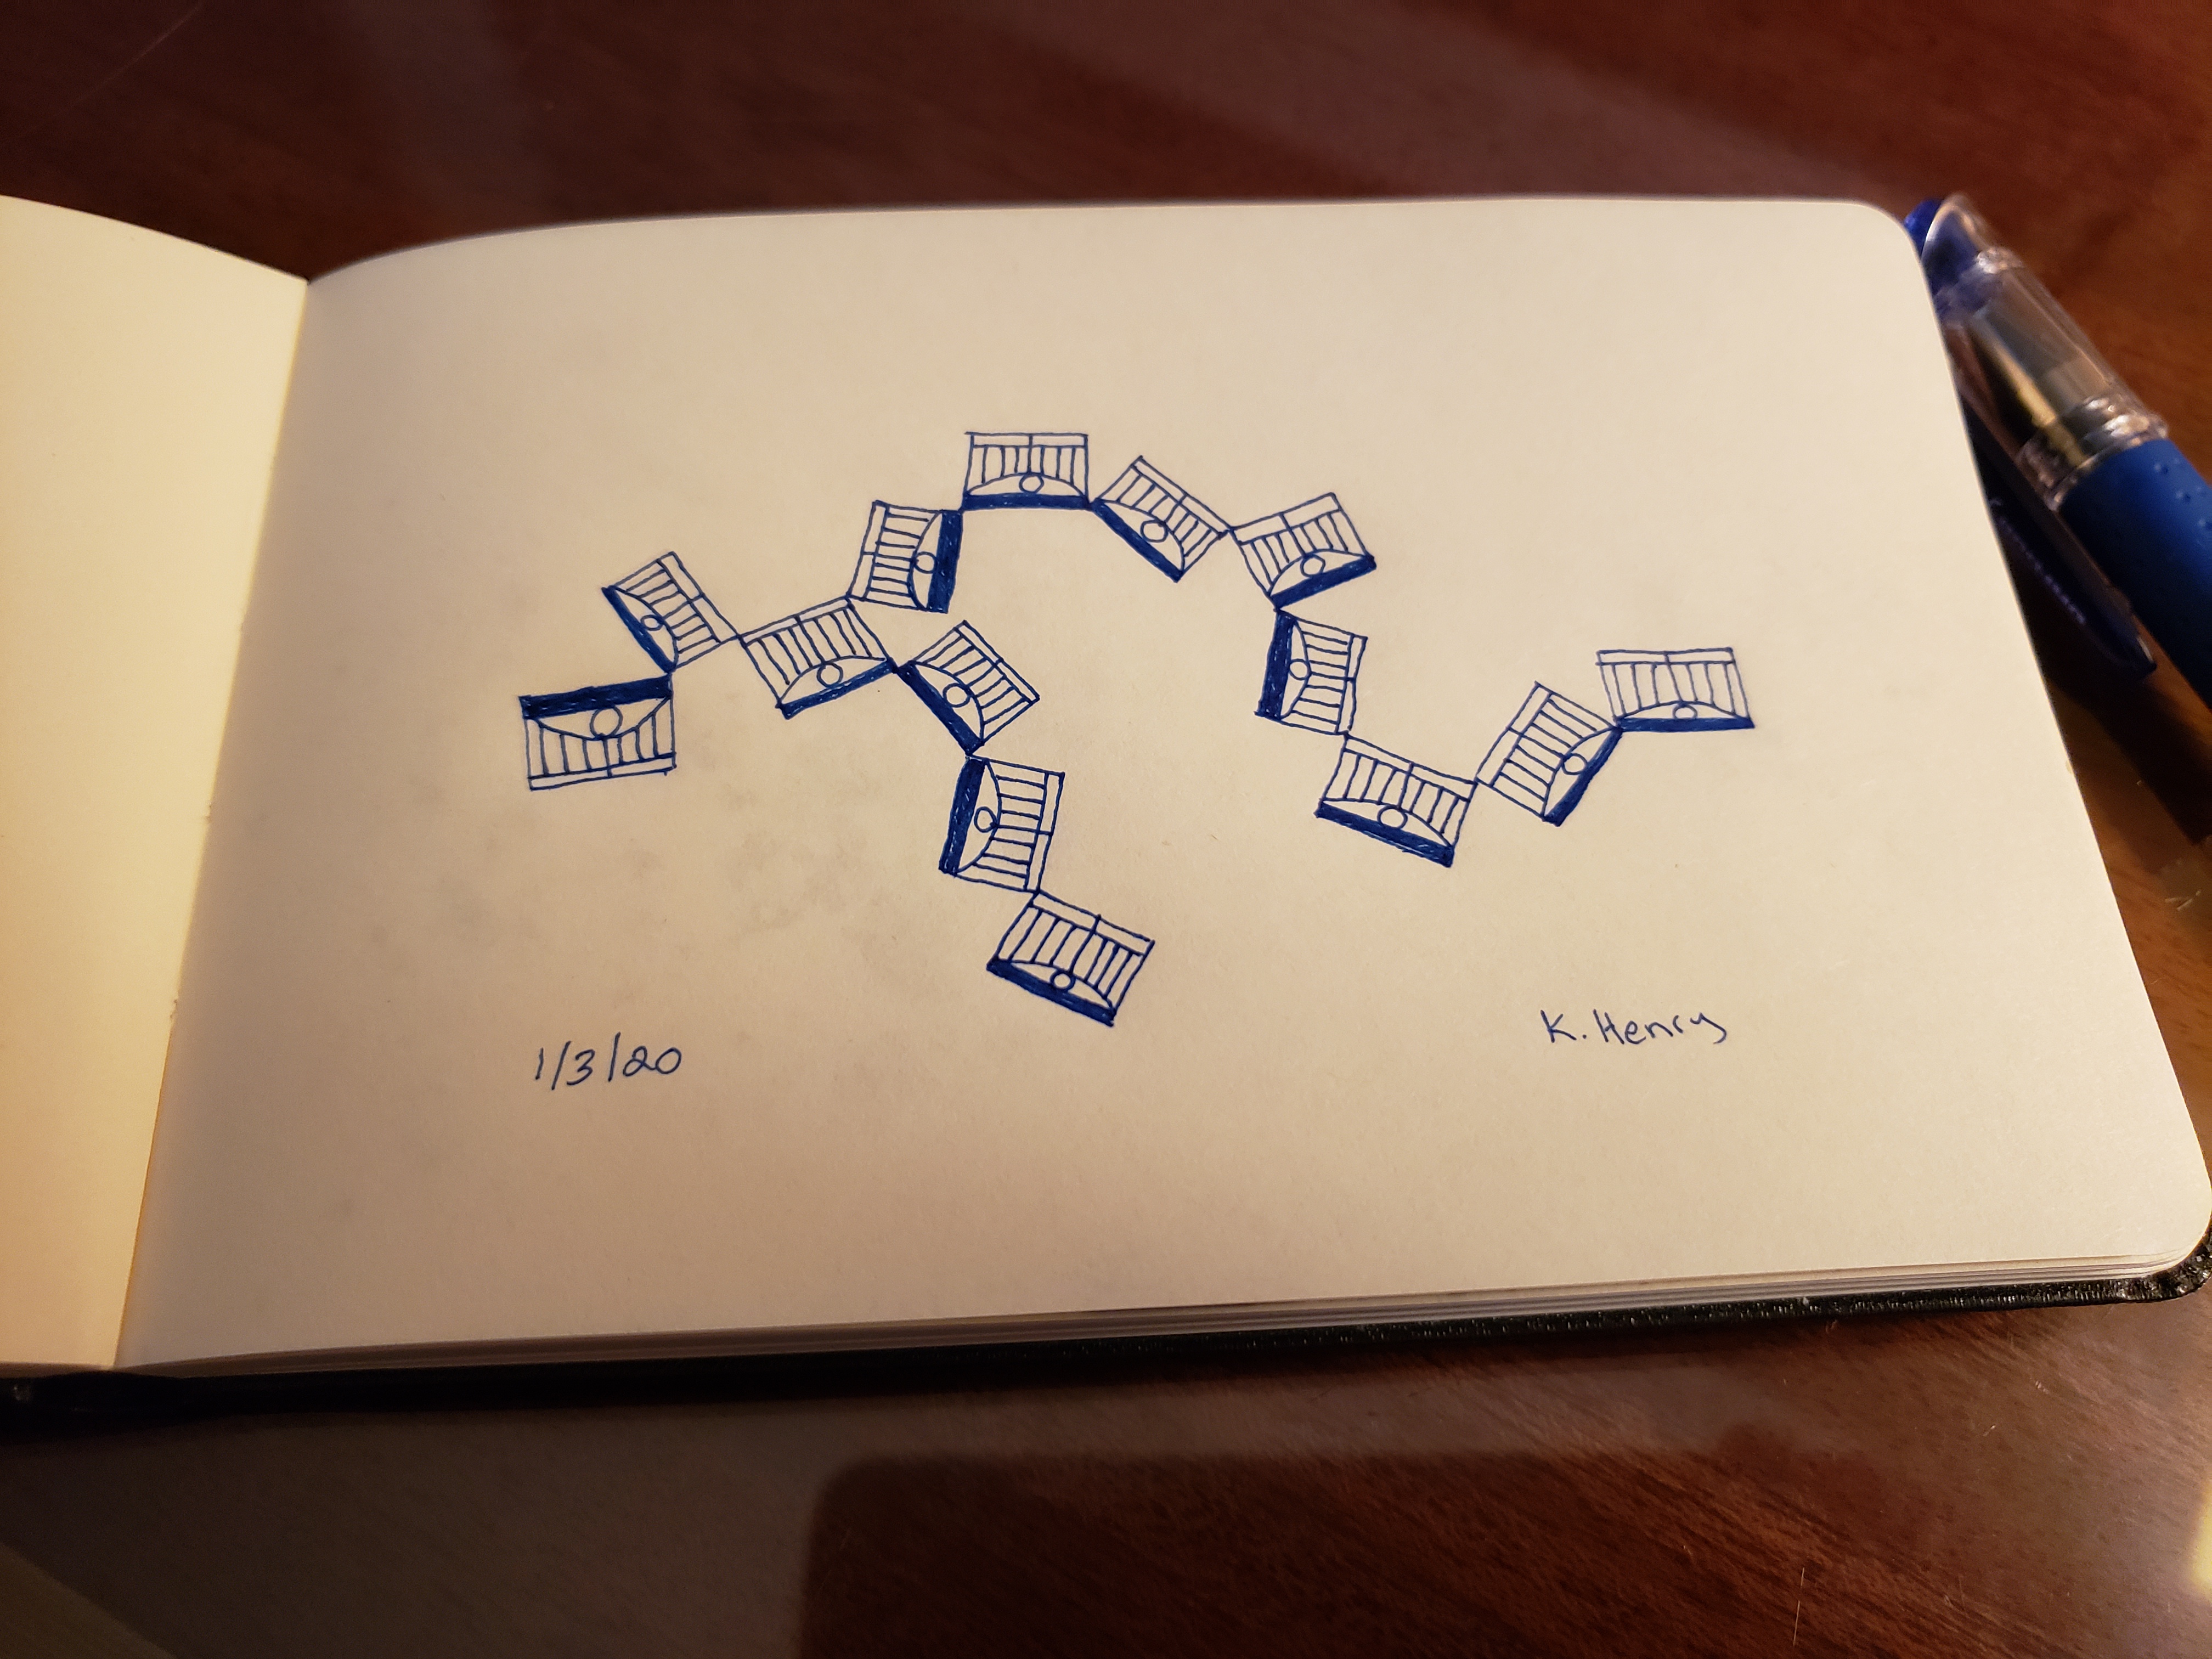 1/3/20
K. Henry